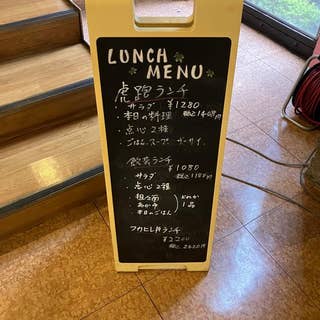 LUNCH
MENU
虎跑ランチ
・サラダ ¥1280
・本日の料理 税込1408円
・点心2種
・ごはん、スープ、ザーサイ
飲茶ランチ
¥1080
・サラダ 税込1188円
・点心2種
・担々麺
・おかゆ どれか1品
・本日のごはん
フカヒレ丼ランチ
¥2200
税込2420円